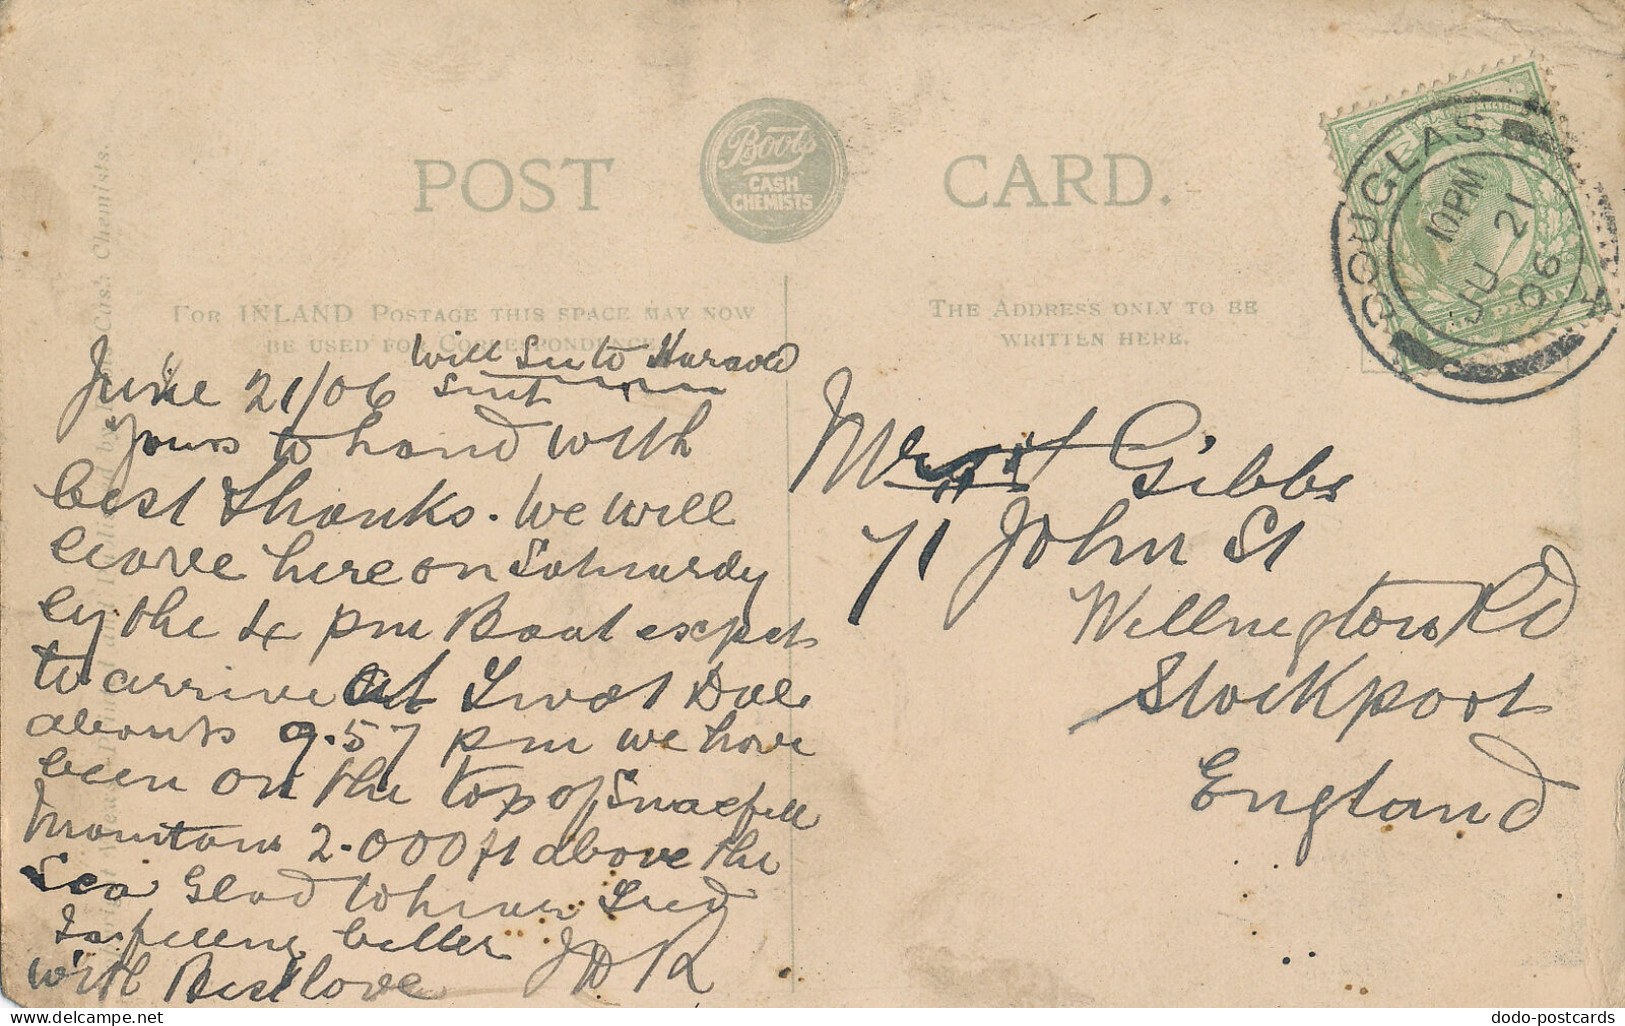 POST CARD.
Boots
CASH
CHEMISTS
DOUGLAS
10PM
JU 21
06
For INLAND Postage this space may now
be used for Correspondence
The Address only to be
written here.
Will See to Harold
June 21/06
Yours to hand with
best thanks. We will
leave here on Saturday
by the 4 pm Boat expects
to arrive at
abouts 9.57 pm we have
been on the top of Snaefell
Mountain 2.000 ft above the
Sea Glad to hear Fred
Is feeling better
with Best love J H R
Gibbs
71 John St
Wellington Rd
Stockport
England
Cash Chemists.
dodo-postcards